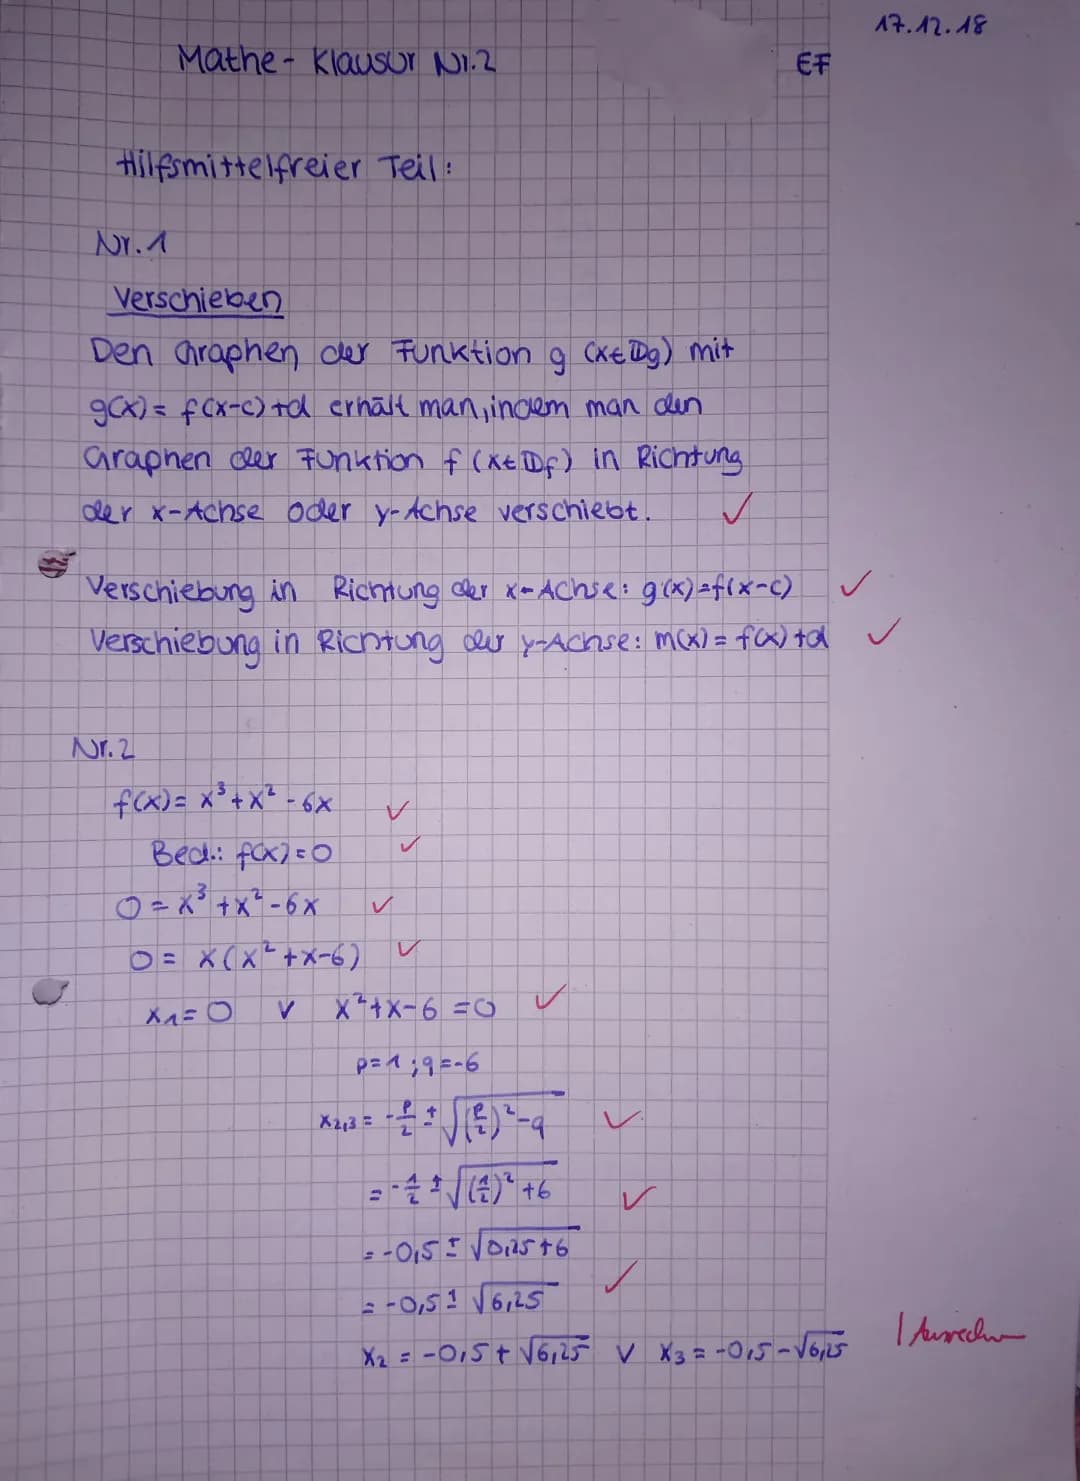 17.12.18
Mathe- Klausur Nr.2
EF
Hilfsmittelfreier Teil:
Nr.1
Verschieben
Den Graphen der Funktion g (x∈Dg) mit
g(x)= f(x-c)+d erhält man, indem man den
Graphen der Funktion f (x∈Df) in Richtung
der x-Achse oder y-Achse verschiebt. ✓
Verschiebung in Richtung der x-Achse: g(x)=f(x-c) ✓
Verschiebung in Richtung der y-Achse: m(x)= f(x)+d ✓
Nr.2
f(x)= x³+x²-6x ✓
Bed.: f(x)=0 ✓
0=x³+x²-6x ✓
0= x(x²+x-6) ✓
x₁=0 ∨ x²+x-6=0 ✓
p=1;q=-6
x₂,₃= -p/2 ± √((p/2)²-q) ✓
=-1/2 ± √((1/2)²+6) ✓
=-0,5 ± √(0,25+6)
=-0,5 ± √6,25 ✓
x₂ =-0,5+√6,25 ∨ x₃=-0,5-√6,25